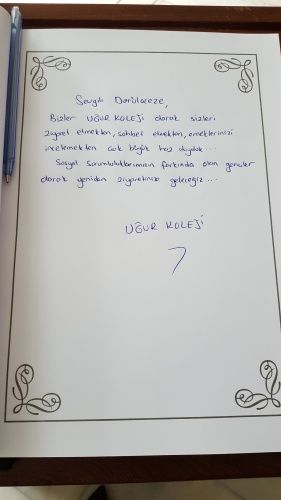 Sevgili Darülaceze,
Bizler UĞUR KOLEJİ olarak sizleri
ziyaret etmekten, sohbet etmekten, emeklerinizi
incelemekten çok büyük haz duyduk...
Sosyal sorumluluklarımızın farkında olan gençler
olarak yeniden ziyaretinize geleceğiz...
UĞUR KOLEJİ